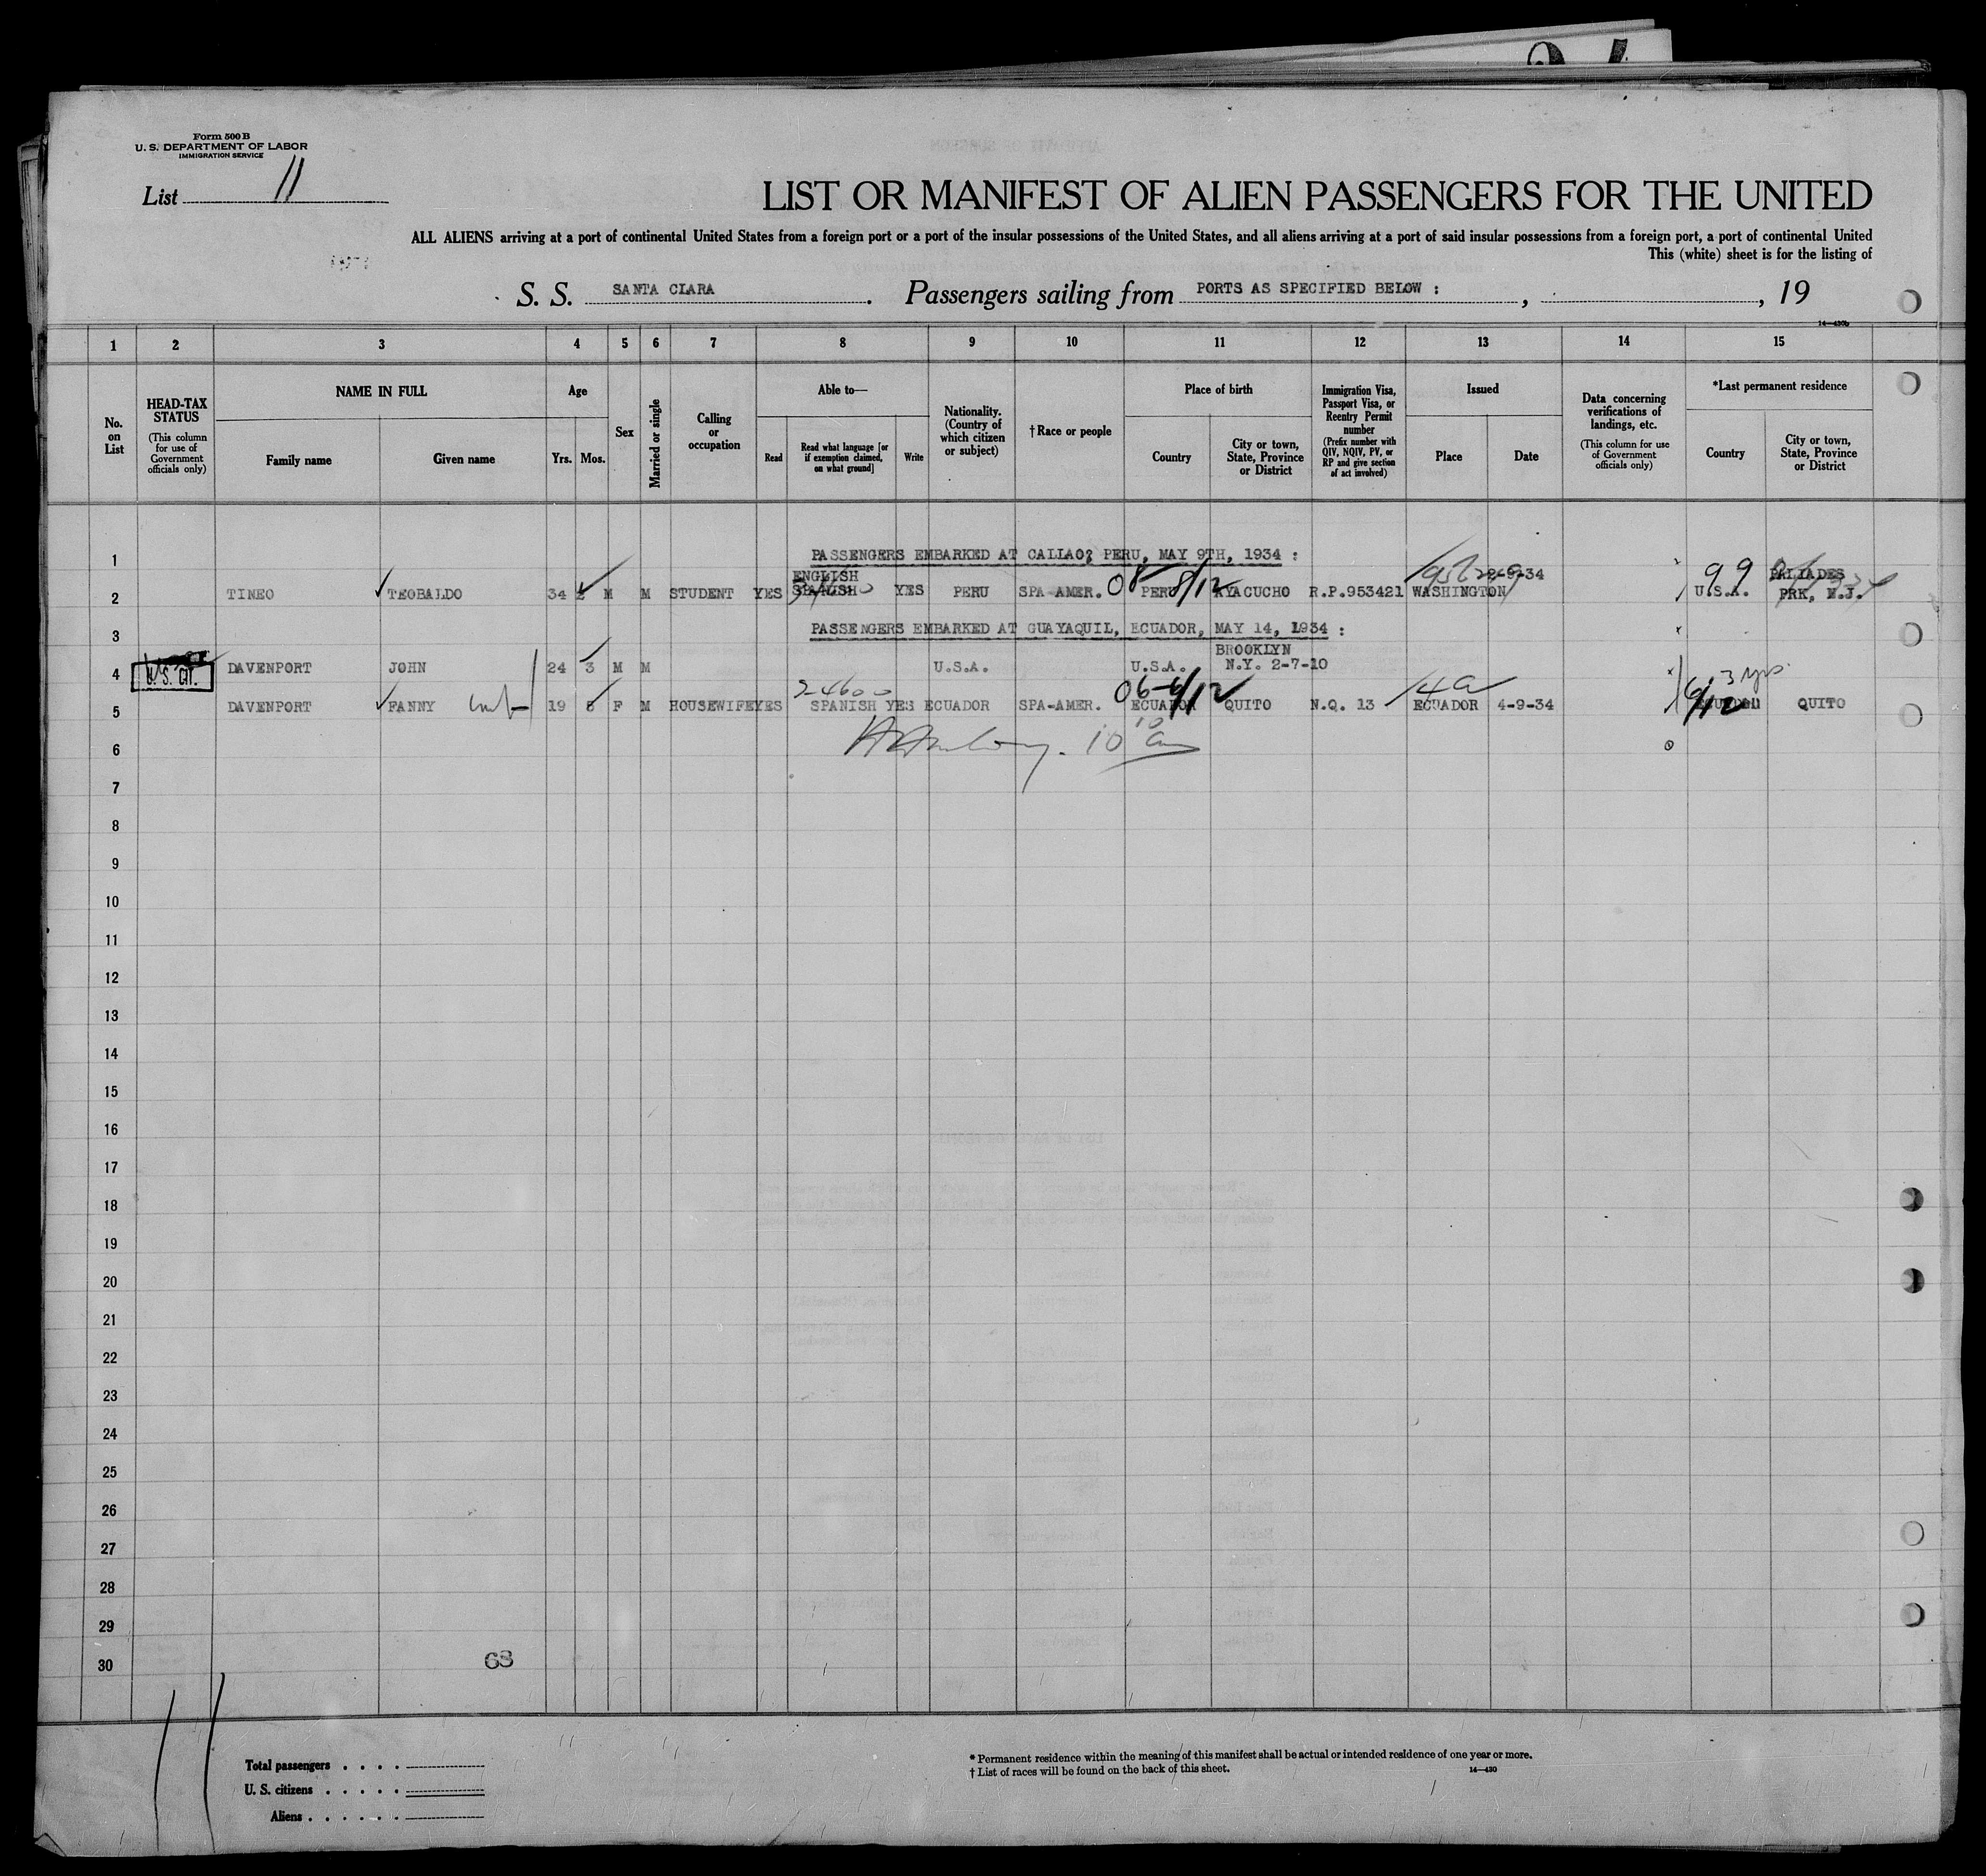 Form 500 B
U. S. DEPARTMENT OF LABOR
IMMIGRATION SERVICE
List 11
LIST OR MANIFEST OF ALIEN PASSENGERS FOR THE UNITED
ALL ALIENS arriving at a port of continental United States from a foreign port or a port of the insular possessions of the United States, and all aliens arriving at a port of said insular possessions from a foreign port, a port of continental United
This (white) sheet is for the listing of
S. S. SANTA CLARA. Passengers sailing from PORTS AS SPECIFIED BELOW : , , 19
14—430b
1 2 3 4 5 6 7 8 9 10 11 12 13 14 15
No. on List
HEAD-TAX STATUS
(This column for use of Government officials only)
NAME IN FULL
Family name Given name
Age
Yrs. Mos.
Sex
Married or single
Calling or occupation
Able to—
Read Read what language [or if exemption claimed, on what ground] Write
Nationality. (Country of which citizen or subject)
†Race or people
Place of birth
Country City or town, State, Province or District
Immigration Visa, Passport Visa, or Reentry Permit number
(Prefix number with QIV, NQIV, PV, or RP and give section of act involved)
Issued
Place Date
Data concerning verifications of landings, etc.
(This column for use of Government officials only)
*Last permanent residence
Country City or town, State, Province or District
1 PASSENGERS EMBARKED AT CALLAO; PERU, MAY 9TH, 1934 :
ENGLISH 99 PALIADES
2 TINEO TEOBALDO 34 M M STUDENT YES SPANISH YES PERU SPA-AMER. 08 PERU 8/12 AYACUCHO R.P.953421 WASHINGTON U.S.A. PRK, N.J.
3 PASSENGERS EMBARKED AT GUAYAQUIL, ECUADOR, MAY 14, 1934 :
BROOKLYN
4 U.S. CIT. DAVENPORT JOHN 24 3 M M U.S.A. U.S.A. N.Y. 2-7-10
24600 06-6/12 4a 3 yrs.
5 DAVENPORT FANNY 19 F M HOUSEWIFE YES SPANISH YES ECUADOR SPA-AMER. ECUADOR QUITO N.Q. 13 ECUADOR 4-9-34 6/12 ECUADOR QUITO
6
7
8
9
10
11
12
13
14
15
16
17
18
19
20
21
22
23
24
25
26
27
28
29
30
63
11
Total passengers . . . .
U. S. citizens . . . . .
Aliens . . . . . .
* Permanent residence within the meaning of this manifest shall be actual or intended residence of one year or more.
† List of races will be found on the back of this sheet.
14—430